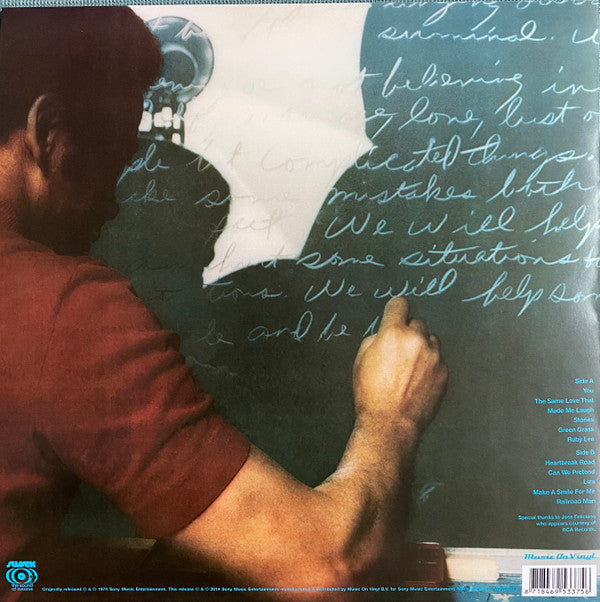 not believing in
long, lust
complicated things.
some mistakes both
We will help
some situations
We will help
and be
Side A
You
The Same Love That
Made Me Laugh
Stories
Green Grass
Ruby Lee
Side B
Heartbreak Road
Can We Pretend
Liza
Make A Smile For Me
Railroad Man
Special thanks to Jose Feliciano
who appears courtesy of
RCA Records.
SUSSEX
the sound
of success
Music On Vinyl
Originally released ℗ & © 1974 Sony Music Entertainment. This release ℗ & © 2014 Sony Music Entertainment. Manufactured & distributed by Music On Vinyl B.V. for Sony Music Entertainment
8 718469 533756